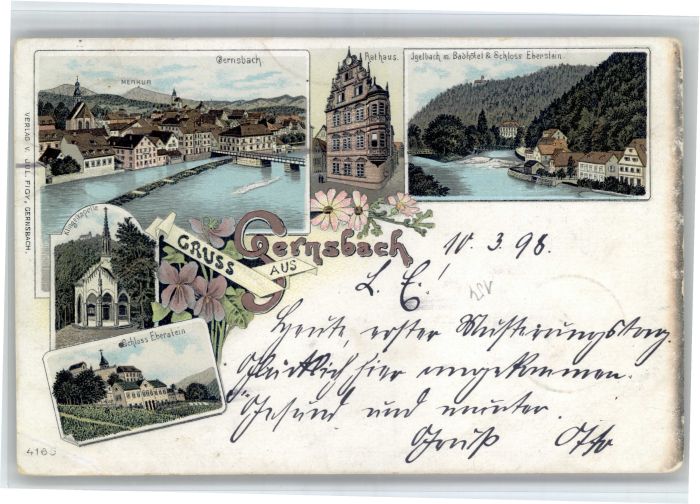 Gernsbach.
MERKUR
Rathaus.
Igelbach m. Badhotel & Schloss Eberstein.
VERLAG V. JUL. FICK, GERNSBACH.
Klingelkapelle
GRUSS AUS Gernsbach
Schloss Eberstein
10. 3. 98.
L. E.!
Heute, erster Musterungstag.
Glücklich hier angekommen.
Gesund und munter.
Gruß Otto
4185